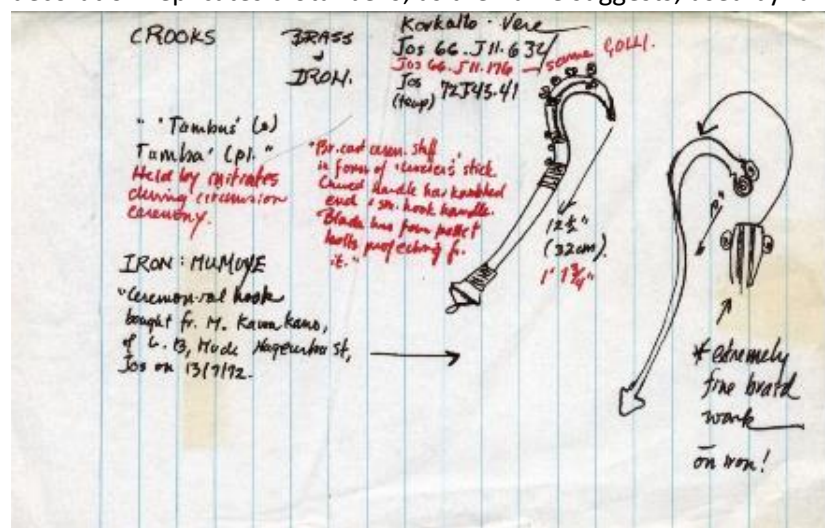 CROOKS
BRASS
IRON.
Korkallo - Vere
Jos 66. J11. 634
Jos 66. J11. 176 — same GOLLI.
Jos 72J43.41
(temp)
"'Tambus' (s)
Tamba' (pl."
Held by initiates
during circumcision
ceremony.
"Br. cast cerem. staff
in form of 'travelers' stick
Curved handle has knobbed
end & sm. hook handle.
Blade has four pellet
bells projecting fr.
it."
12½"
(32cm)
1' 1¾"
IRON: MUMUYE
"Ceremonial hook
bought fr. M. Kawu Kano,
of 13, St,
Jos on 13/7/72.
* extremely
fine braid
work
on iron!